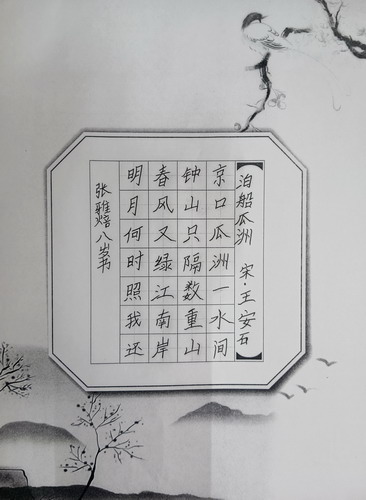 泊船瓜洲 宋·王安石
京口瓜洲一水间
钟山只隔数重山
春风又绿江南岸
明月何时照我还
张雅焙 八岁书